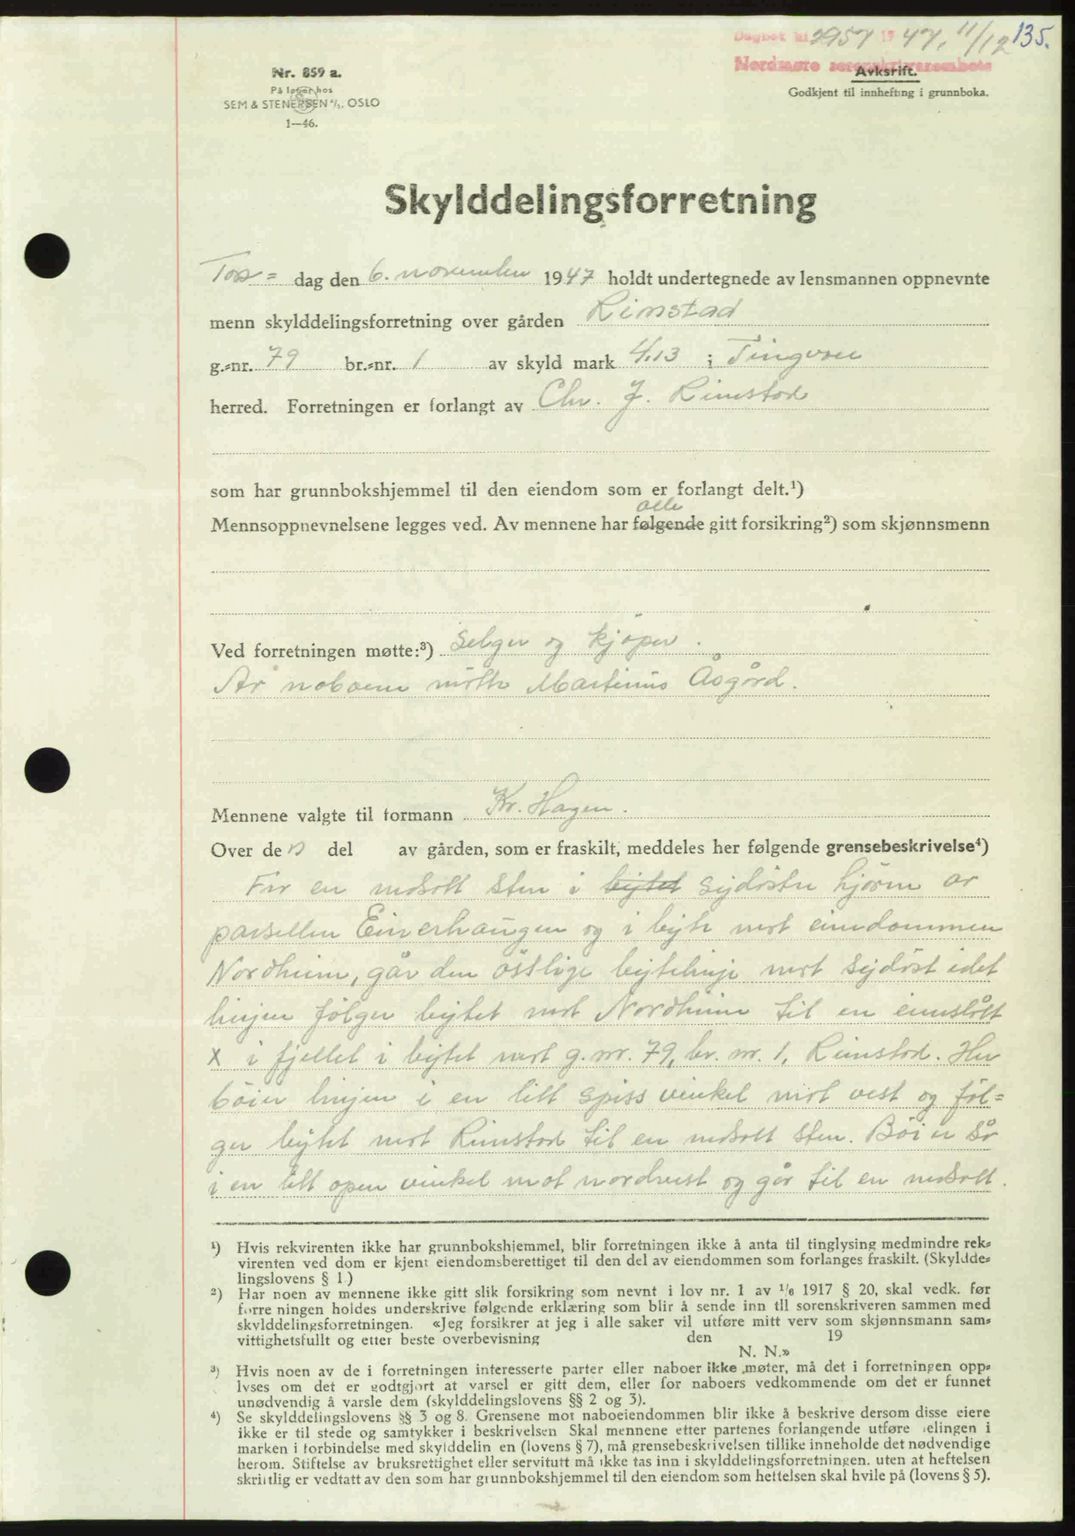 Dagbok nr. 2957 1947, 11/12 135.
Nordmøre sorenskriverembete
Nr. 859 a.
På lager hos
SEM & STENERSEN A/S. OSLO
1—46.
Avksrift.
Godkjent til innhefting i grunnboka.
Skylddelingsforretning
Tors= dag den 6. november 1947 holdt undertegnede av lensmannen oppnevnte
menn skylddelingsforretning over gården Rimstad
g.=nr. 79 br.=nr. 1 av skyld mark 4.13 i Tingvoll
herred. Forretningen er forlangt av Chr. J. Rimstad
som har grunnbokshjemmel til den eiendom som er forlangt delt.¹)
alle
Mennsoppnevnelsene legges ved. Av mennene har følgende gitt forsikring²) som skjønnsmenn
Ved forretningen møtte:³) Selger og kjøper.
Av naboene møtte Martinus Åsgård.
Mennene valgte til formann Kr. Hagen.
Over den del av gården, som er fraskilt, meddeles her følgende grensebeskrivelse⁴)
Fra en nedsatt sten i bytet sydøstre hjørne av
parsellen Einerhaugen og i byte mot eiendommen
Nordheim, går den østlige bytelinje mot sydøst idet
linjen følger bytet mot Nordheim til en innslått
X i fjellet i bytet mot g.nr. 79, br. nr. 1, Rimstad. Her
böier linjen i en litt spiss vinkel mot vest og föl=
ger bytet mot Rimstad til en nedsatt sten. Böier så
i en litt open vinkel mot nordvest og går til en nedsatt
¹) Hvis rekvirenten ikke har grunnbokshjemmel, blir forretningen ikke å anta til tinglysing medmindre rek=
virenten ved dom er kjent eiendomsberettiget til den del av eiendommen som forlanges fraskilt. (Skyldde=
lingslovens § 1.)
²) Har noen av mennene ikke gitt slik forsikring som nevnt i lov nr. 1 av 1/6 1917 § 20, skal vedk. før
forretningen holdes underskrive følgende erklæring som blir å sende inn til sorenskriveren sammen med
skylddelingsforretningen. «Jeg forsikrer at jeg i alle saker vil utføre mitt verv som skjønnsmann sam=
vittighetsfullt og etter beste overbevisning den 19
N. N.»
³) Hvis noen av de i forretningen interesserte parter eller naboer ikke møter, må det i forretningen opp=
lyses om det er godtgjort at varsel er gitt dem, eller for naboers vedkommende om det er funnet
unødvendig å varsle dem (skylddelingslovens §§ 2 og 3).
⁴) Se skylddelingslovens §§ 3 og 8. Grensene mot naboeiendommen blir ikke å beskrive dersom disse eiere
ikke er til stede og samtykker i beskrivelsen Skal mennene etter partenes forlangende utføre delingen i
marken i forbindelse med skylddelin en (lovens § 7), må grensebeskrivelsen tillike inneholde det nødvendige
herom. Stiftelse av bruksrettighet eller servitutt må ikke tas inn i skylddelingsforretningen. uten at heftelsen
skriftlig er vedtatt av den som har grunnbokshjemmel til den eiendom som heftelsen skal hvile på (lovens § 5).